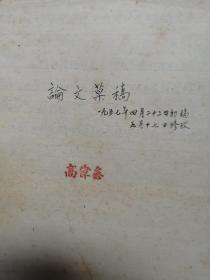 論文草稿
一九五七年四月二十二日初稿
五月十七日修改
高棠鑫